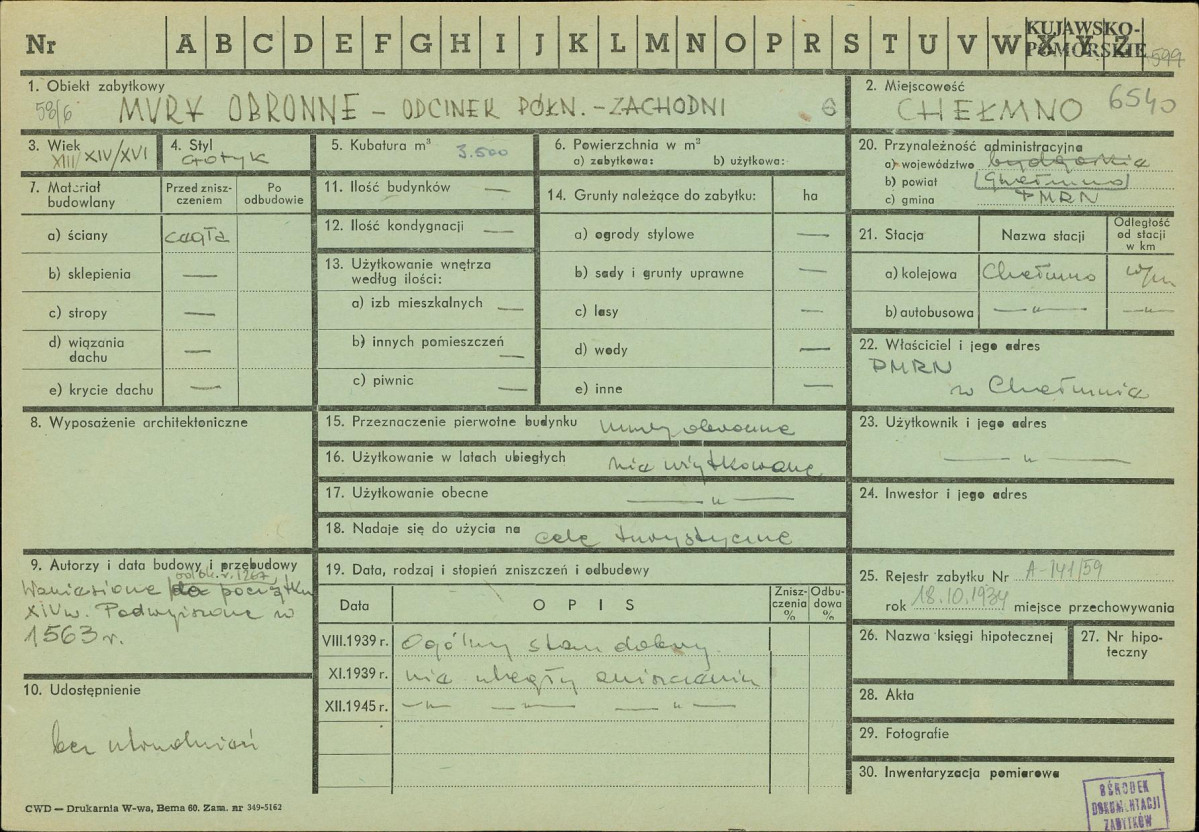 Nr A B C D E F G H I J K L M N O P R S T U V W X Y Z
KUJAWSKO-
POMORSKIE
1. Obiekt zabytkowy
58/6 MURY OBRONNE – ODCINEK PÓŁN. – ZACHODNI 6
2. Miejscowość
CHEŁMNO 6540
3. Wiek
XIII/XIV/XVI
4. Styl
Gotyk
5. Kubatura m³ 3.500
6. Powierzchnia w m³
a) zabytkowa: b) użytkowa:
20. Przynależność administracyjna
a) województwo bydgoskie
b) powiat Chełmno
c) gmina PMRN
7. Materiał
budowlany
Przed znisz-
czeniem
Po
odbudowie
a) ściany cegła
b) sklepienia —
c) stropy —
d) wiązania
dachu —
e) krycie dachu —
11. Ilość budynków —
12. Ilość kondygnacji —
13. Użytkowanie wnętrza
według ilości:
a) izb mieszkalnych —
b) innych pomieszczeń —
c) piwnic —
14. Grunty należące do zabytku: ha
a) ogrody stylowe —
b) sady i grunty uprawne —
c) lasy —
d) wody —
e) inne —
21. Stacja Nazwa stacji
Odległość
od stacji
w km
a) kolejowa Chełmno w/m
b) autobusowa — „ — — „ —
22. Właściciel i jego adres
PMRN
w Chełmnie
8. Wyposażenie architektoniczne
15. Przeznaczenie pierwotne budynku mury obronne
16. Użytkowanie w latach ubiegłych nie użytkowane
17. Użytkowanie obecne — „ —
18. Nadaje się do użycia na cele turystyczne
23. Użytkownik i jego adres
— „ —
24. Inwestor i jego adres
9. Autorzy i data budowy i przebudowy
od ok. r. 1267,
Wzniesione do początku
XIV w. Podwyższone w
1563 r.
19. Data, rodzaj i stopień zniszczeń i odbudowy
Data OPIS
Znisz-
czenia
%
Odbu-
dowa
%
VIII.1939 r. Ogólny stan dobry.
XI.1939 r. nie uległy zniszczeniu
XII.1945 r. — „ — — „ — — „ —
25. Rejestr zabytku Nr A-141/59
rok 18.10.1934 miejsce przechowywania
26. Nazwa księgi hipotecznej
27. Nr hipo-
teczny
10. Udostępnienie
bez utrudnień
28. Akta
29. Fotografie
30. Inwentaryzacja pomiarowa
CWD — Drukarnia W-wa, Bema 60. Zam. nr 349-5162
OŚRODEK
DOKUMENTACJI
ZABYTKÓW